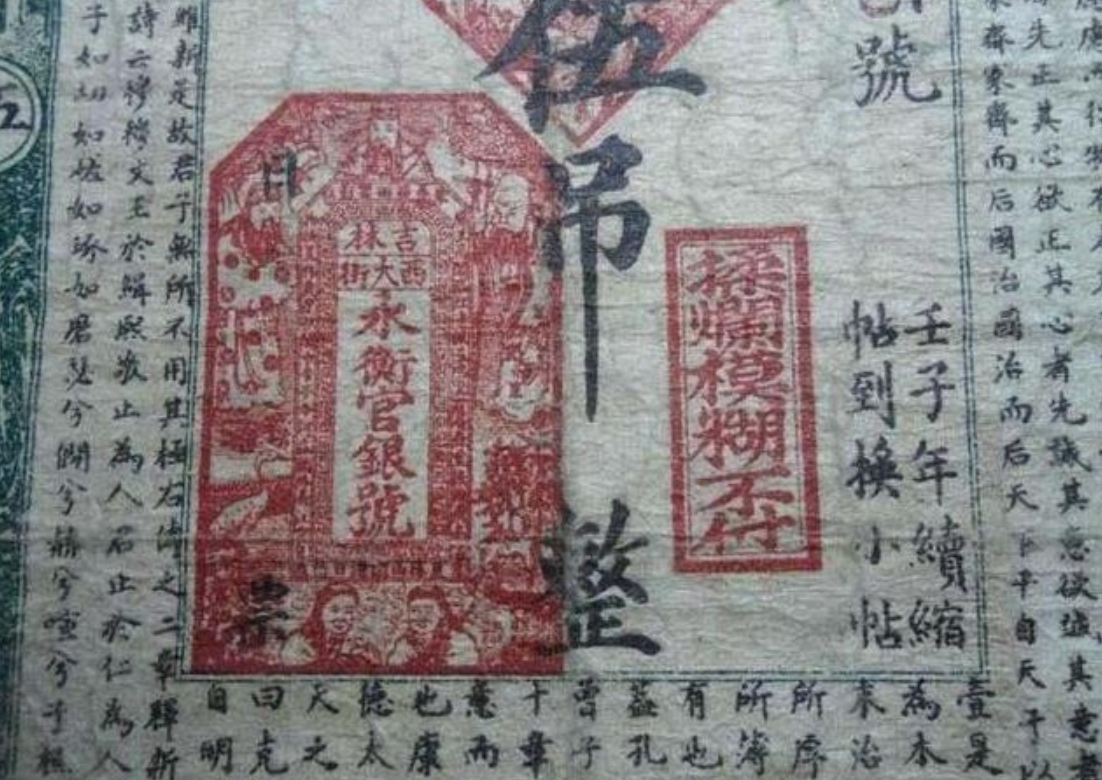 先正其心欲正其心者先誠其意欲誠其意者
家齊家齊而后國治國治而后天下平自天子以
號
壬子年續縮
帖到換小帖
揉爛模糊不付
伍吊整
吉林
西大街
永衡官銀號
日
票
壹是
為本
末治
所厚
所薄
有也
蓋孔
曾子
十章
意而
也康
德太
天之
曰克
自明
維新是故君子無所不用其極右傳之二章釋新
詩云穆穆文王於緝熙敬止為人君止於仁為人
子如切如磋如琢如磨瑟兮僩兮赫兮喧兮
五